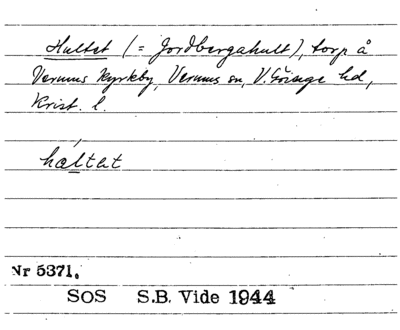 Hultet (= Jordbergahult), torp å
Verums kyrkby, Verums sn, V. Göinge hd,
Krist. l.
háltət
Nr 5371.
SOS S.B. Vide 1944